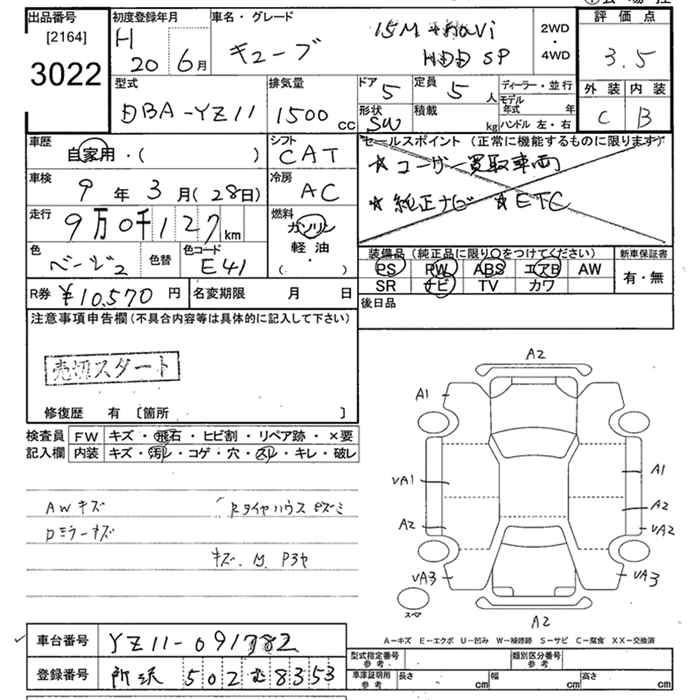 出品番号
[2164]
3022
初度登録年月
H
20 6月
車名・グレード
キューブ
15M +navi
HDD SP
2WD
・
4WD
評価点
3.5
外装 内装
C B
型式
DBA-YZ11
排気量
1500 CC
ドア 5
定員 5 人
形状 SW
積載 kg
ディーラー・並行
モデル年式 年
ハンドル 左・右
車歴
自家用・( )
シフト
CAT
セールスポイント (正常に機能するものに限ります)
☆ユーザー買取車両
☆純正ナビ ☆ETC
車検
9 年 3 月 (28日)
冷房
AC
走行
9万0千127 km
燃料
ガソリン
軽油
( )
色
ベージュ2
色替
色コード
E41
装備品 (純正品に限り○をつけてください)
PS PW ABS エアB AW
SR ナビ TV カワ
新車保証書
有・無
R券 ¥10,570 円
名変期限 月 日
後日品
注意事項申告欄 (不具合内容等は具体的に記入して下さい)
売切スタート
修復歴 有 [箇所 ]
検査員 FW キズ・飛石・ヒビ割・リペア跡・×要
記入欄 内装 キズ・汚レ・コゲ・穴・スレ・キレ・破レ
AWキズ
Rタイヤハウス
ロミラーキズ
A2
A1
VA1
A2
VA3
A1
A2
VA2
VA3
A2
スペ
A-キズ E-エクボ U-凹み W-補修跡 S-サビ C-腐食 XX-交換済
車台番号 YZ11-091782
登録番号 所沢 502 む 8353
型式指定番号 参考
類別区分番号 参考
車庫証明用 参考
長さ cm 幅 cm 高さ cm